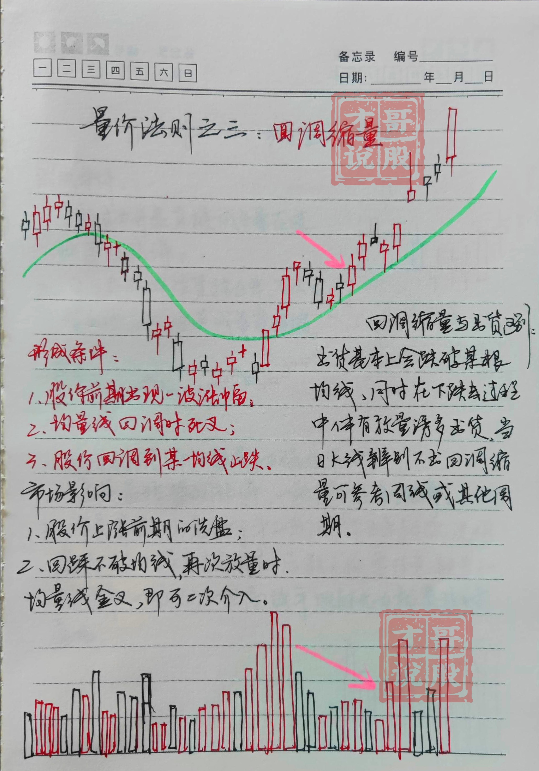 备忘录 编号
一 二 三 四 五 六 日
日期: 年 月 日
量价法则之三:回调缩量
才哥
说股
形成条件:
1、股价前期出现一波涨幅。
2、均量线回调时死叉;
3、股价回调到某一均线止跌。
市场影响:
1、股价上涨前期的洗盘;
2、回踩不破均线,再次放量时.
均量线金叉,即可二次介入。
回调缩量与出货区别:
出货基本上会跌破某根
均线,同时在下跌过程
中伴有放量诱多出货,当
日K线辨别不出回调缩
量可参考周线或其他周
期。
才哥
说股